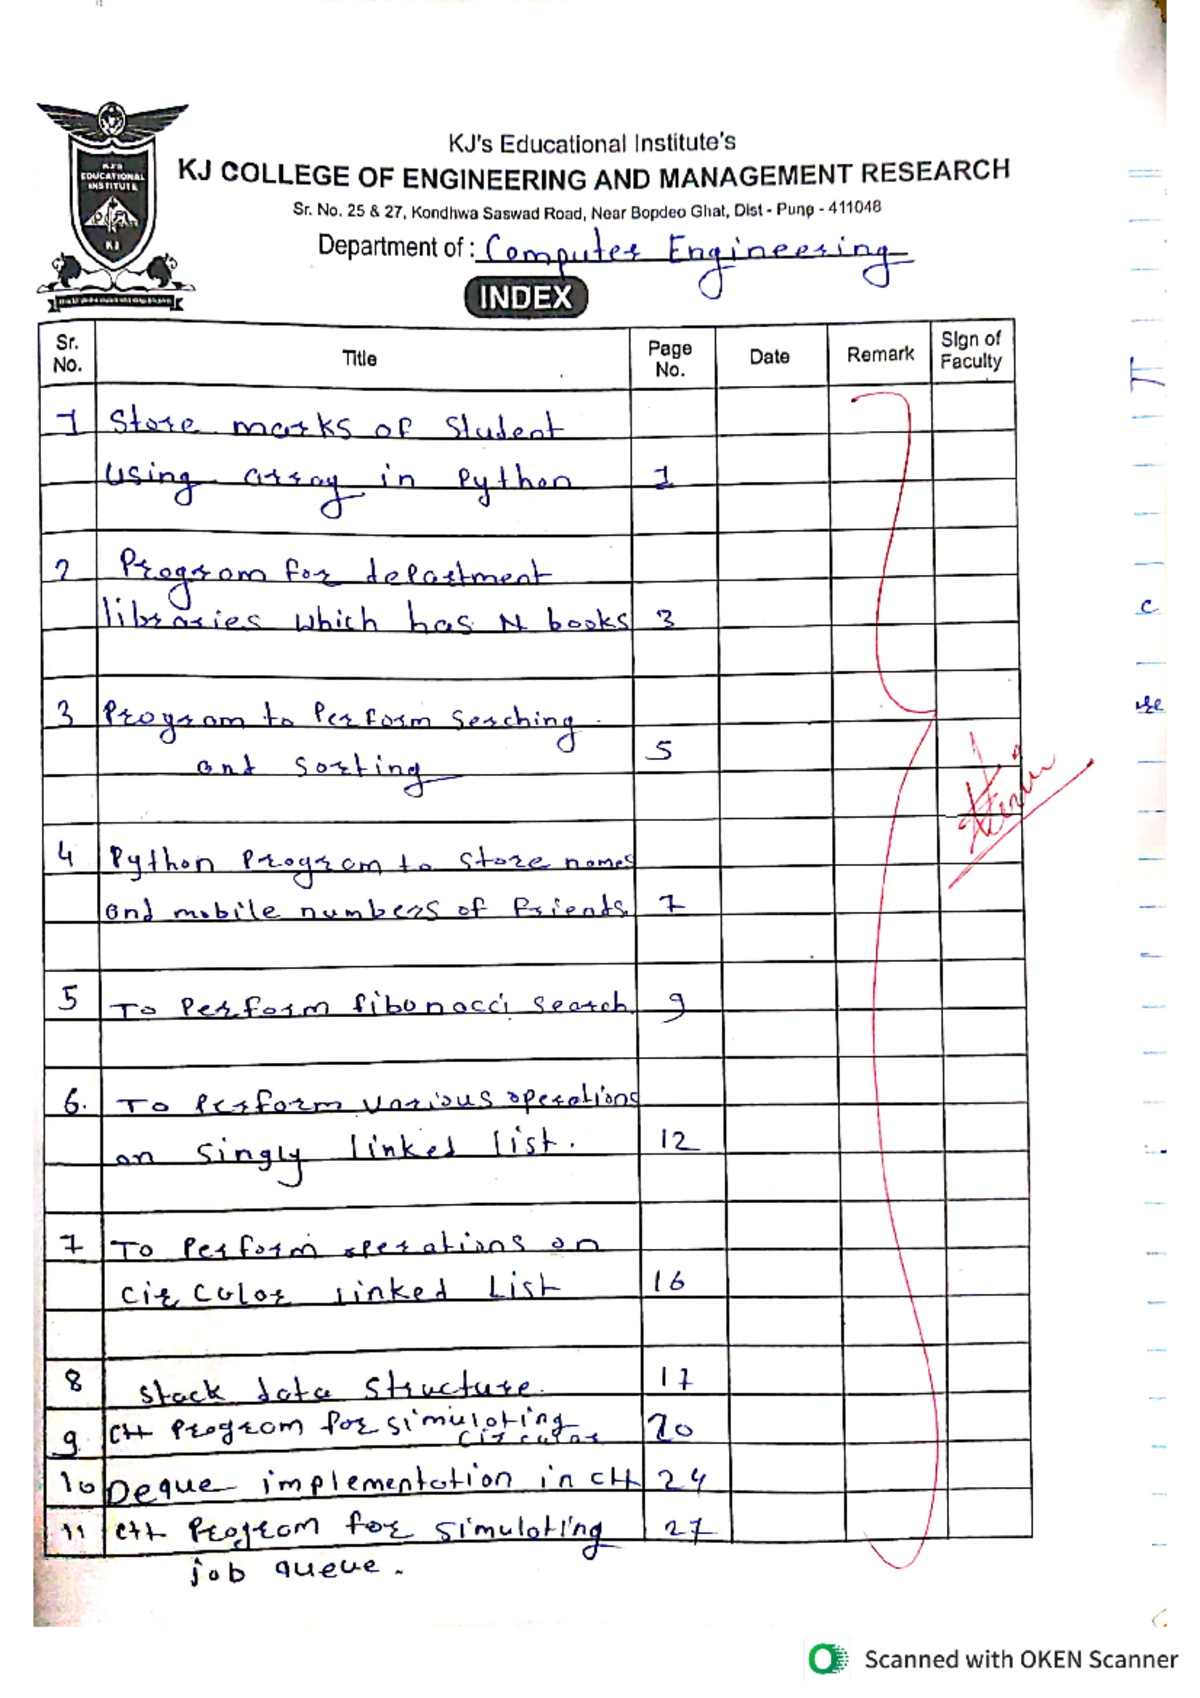 KJ's Educational Institute's
KJ COLLEGE OF ENGINEERING AND MANAGEMENT RESEARCH
Sr. No. 25 & 27, Kondhwa Saswad Road, Near Bopdeo Ghat, Dist - Pune - 411048
KJ'S
EDUCATIONAL
INSTITUTE
KJ
Department of : Computer Engineering
INDEX
Sr. No. Title Page No. Date Remark Sign of Faculty
1 Store marks of Student
using array in Python 1
2 Program for department
libraries which has N books 3
3 Program to Perform Serching
and sorting 5
4 Python Program to store names
and mobile numbers of friends. 7
5 To Perform fibonacci search. 9
6. To Perform various operations
on singly linked list. 12
7 To Perform operations on
circular linked List 16
8 Stack data structure. 17
9 C++ Program for simulating
circular 20
10 Deque implementation in C++ 24
11 C++ Program for simulating 27
job queue.
Scanned with OKEN Scanner